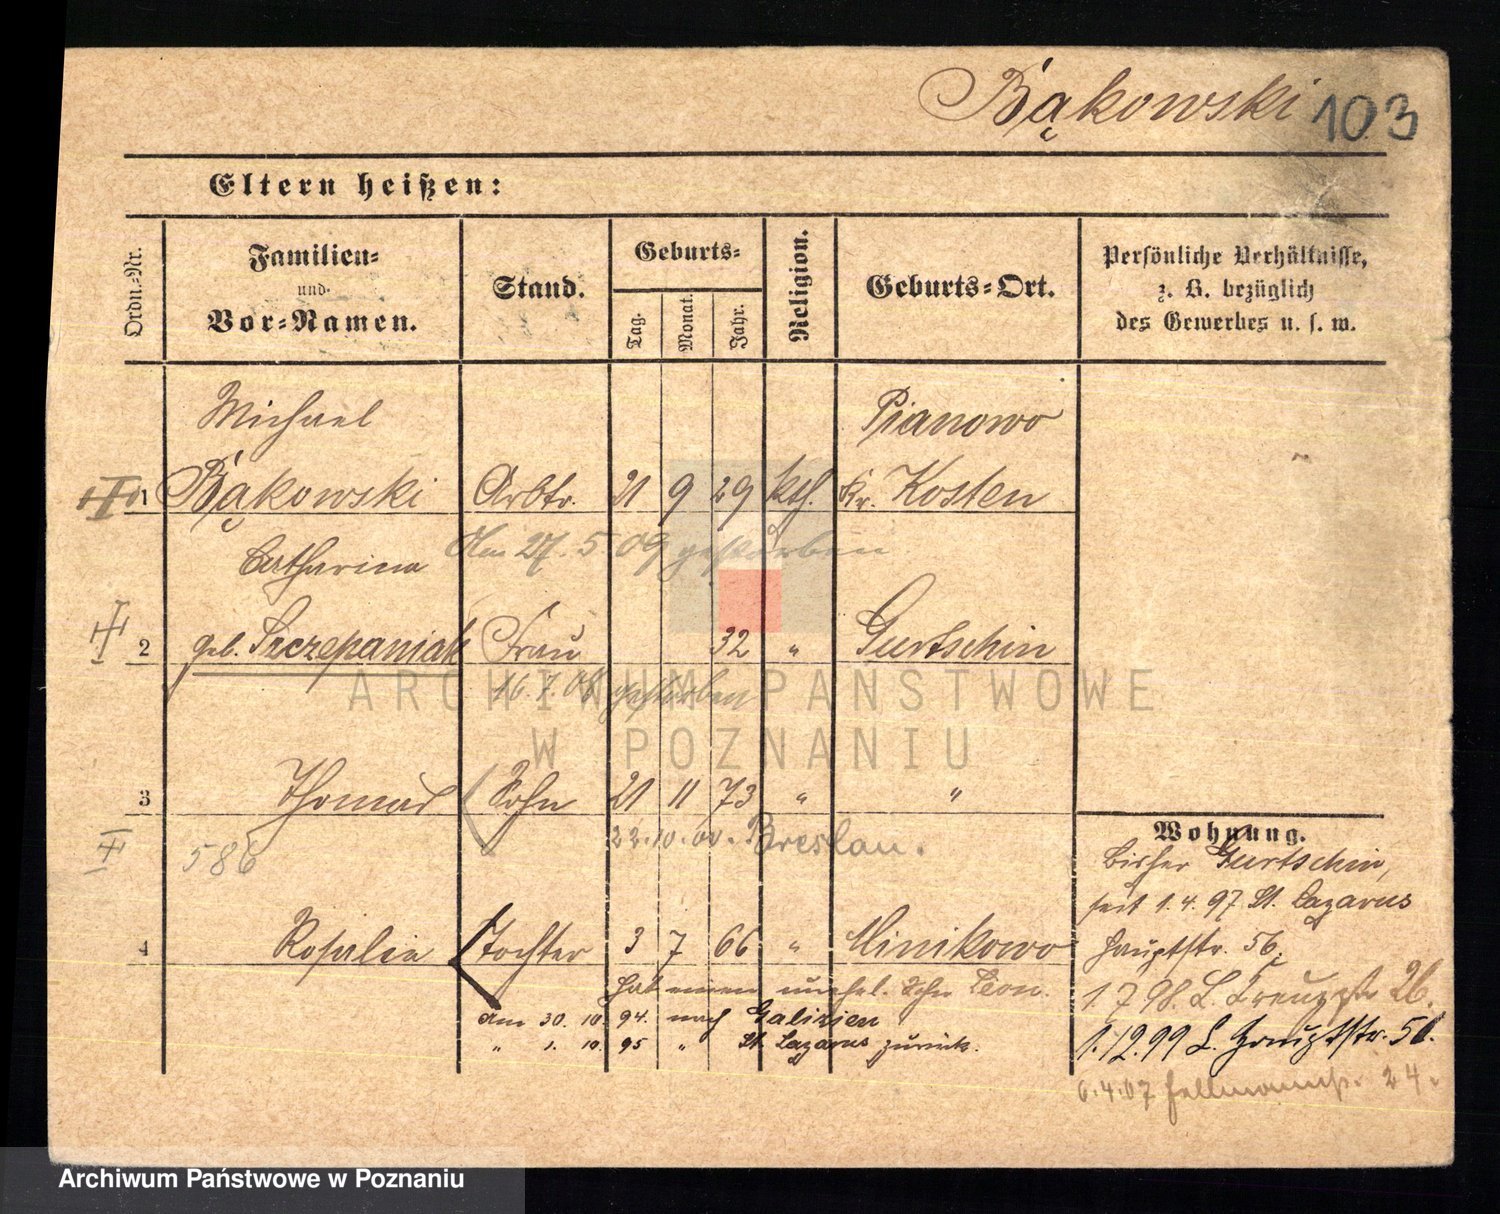 Bąkowski 103
Eltern heißen:
Ordn.-Nr.
Familien-
und
Vor-Namen.
Stand.
Geburts-
Tag.
Monat.
Jahr.
Religion.
Geburts-Ort.
Persönliche Verhältnisse,
z. B. bezüglich
des Gewerbes u. s. w.
Michael Pianowo
1 Bąkowski Arbtr. 21 9 29 kth. Kr. Kosten
Am 27. 5. 09 gestorben
Catharina
2 geb. Szczepaniak Frau 32 " Gurtschin
16. 7. 06 gestorben
ARCHIWUM PAŃSTWOWE
W POZNANIU
3 Thomas Sohn 21 11 73 " "
586 22. 10. 00. Breslau.
4 Rosalie Tochter 3 7 66 " Minikowo
hat einen unehel. Sohn Leon.
Am 30. 10. 94. nach Galizien
" 1. 10. 95 " St. Lazarus zurück.
Wohnung.
bisher Gurtschin,
seit 1. 4. 97 St. Lazarus
Hauptstr. 56.
1. 7 98. L. Kreuzstr 26.
1. 12. 99 L. Hauptstr. 56.
6. 4. 07 24.
Archiwum Państwowe w Poznaniu